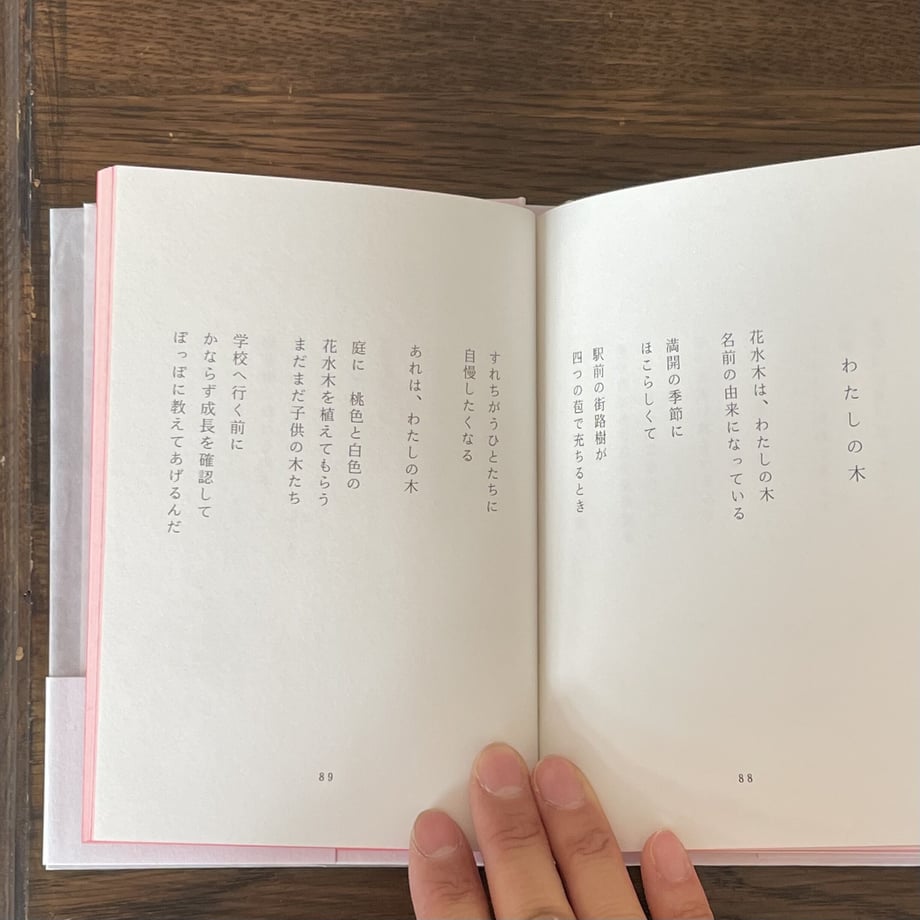 わたしの木
花水木は、わたしの木
名前の由来になっている
満開の季節に
ほこらしくて
駅前の街路樹が
四つの苞で充ちるとき
88
すれちがうひとたちに
自慢したくなる
あれは、わたしの木
庭に　桃色と白色の
花水木を植えてもらう
まだまだ子供の木たち
学校へ行く前に
かならず成長を確認して
ぽっぽに教えてあげるんだ
89